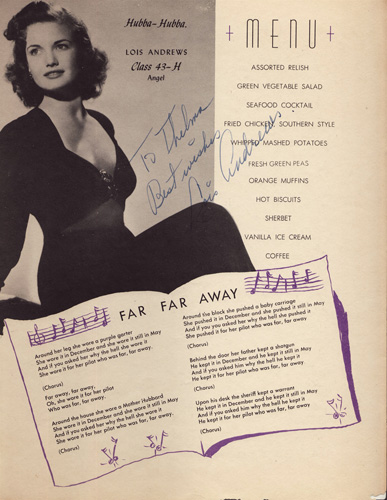 Hubba-Hubba.
LOIS ANDREWS
Class 43-H
Angel
To Thelma
Best wishes
Lois Andrews.
MENU
ASSORTED RELISH
GREEN VEGETABLE SALAD
SEAFOOD COCKTAIL
FRIED CHICKEN, SOUTHERN STYLE
WHIPPED MASHED POTATOES
FRESH GREEN PEAS
ORANGE MUFFINS
HOT BISCUITS
SHERBET
VANILLA ICE CREAM
COFFEE
FAR FAR AWAY
Around her leg she wore a purple garter
She wore it in December and she wore it still in May
And if you asked her why the hell she wore it
She wore it for her pilot who was far, far away.
(Chorus)
Far away, far away,
Oh, she wore it for her pilot
Who was far, far away.
Around the house she wore a Mother Hubbard
She wore it in December and she wore it still in May
And if you asked her why the hell she wore it
She wore it for her pilot who was far, far away.
(Chorus)
Around the block she pushed a baby carriage
She pushed it in December and she pushed it still in May
And if you you asked her why the hell she pushed it
She pushed it for her pilot who was far, far away
(Chorus)
Behind the door her father kept a shotgun
He kept it in December and he kept it still in May
And if you asked him why the hell he kept it
He kept it for her pilot who was far, far away
(Chorus)
Upon his desk the sheriff kept a warrant
He kept it in December and he kept it still in May
And if you asked him why the hell he kept it
He kept it for her pilot who was far, far away
(Chorus)